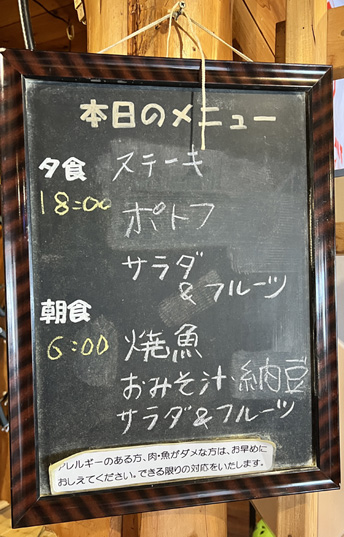 本日のメニュー
夕食 ステーキ
18:00 ポトフ
サラダ
&フルーツ
朝食
6:00 焼魚
おみそ汁・納豆
サラダ&フルーツ
アレルギーのある方、肉・魚がダメな方は、お早めに
おしえてください。できる限りの対応をいたします。